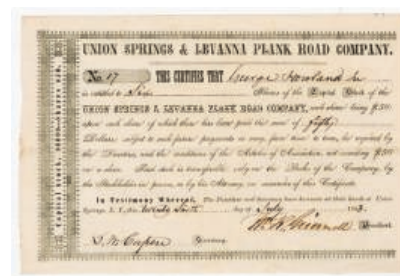 UNION SPRINGS & LEVANNA PLANK ROAD COMPANY.
No. 17 THIS CERTIFIES THAT George Howland Jr
is entitled to Six Shares of the Capital Stock of the
UNION SPRINGS & LEVANNA PLANK ROAD COMPANY, each share being $50
upon each share of which there has been paid the sum of fifty
Dollars, subject to such future payments as may, from time to time, be required by
the Directors, and the conditions of the Articles of Association, not exceeding $50
on a share. Said stock is transferable only on the Books of the Company, by
the Stockholder in person, or by his Attorney, on surrender of this Certificate.
In Testimony Whereof, The President and Secretary have
Springs, N. Y., this day of July
President.
Secretary.
Capital Stock,